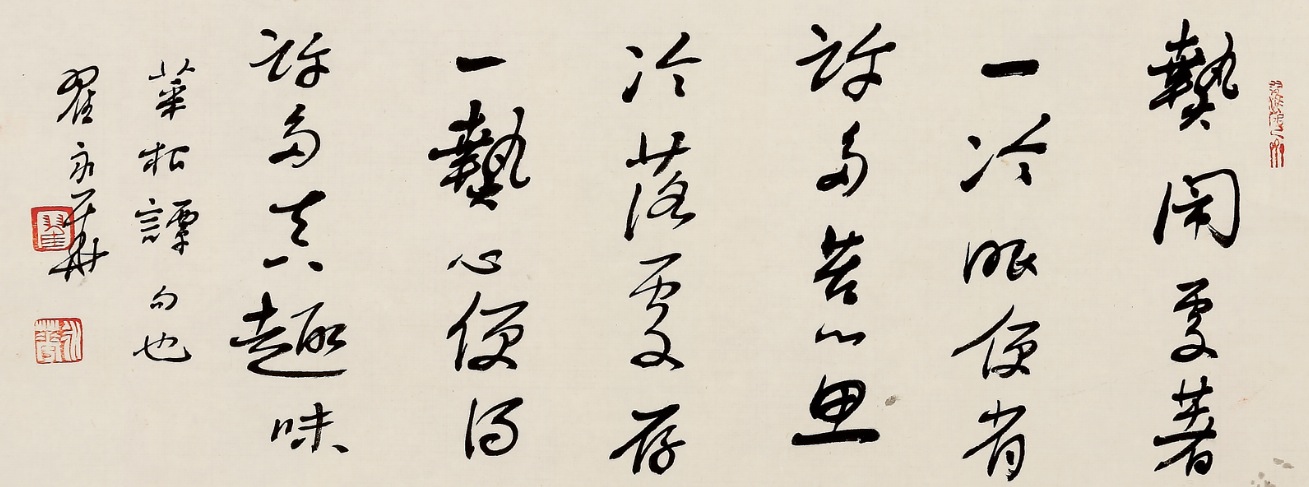 熱鬧處著
一冷眼便省
許多苦心思
冷落處存
一熱心便得
許多真趣味
菜根譚句也
翟永華
翟
永華